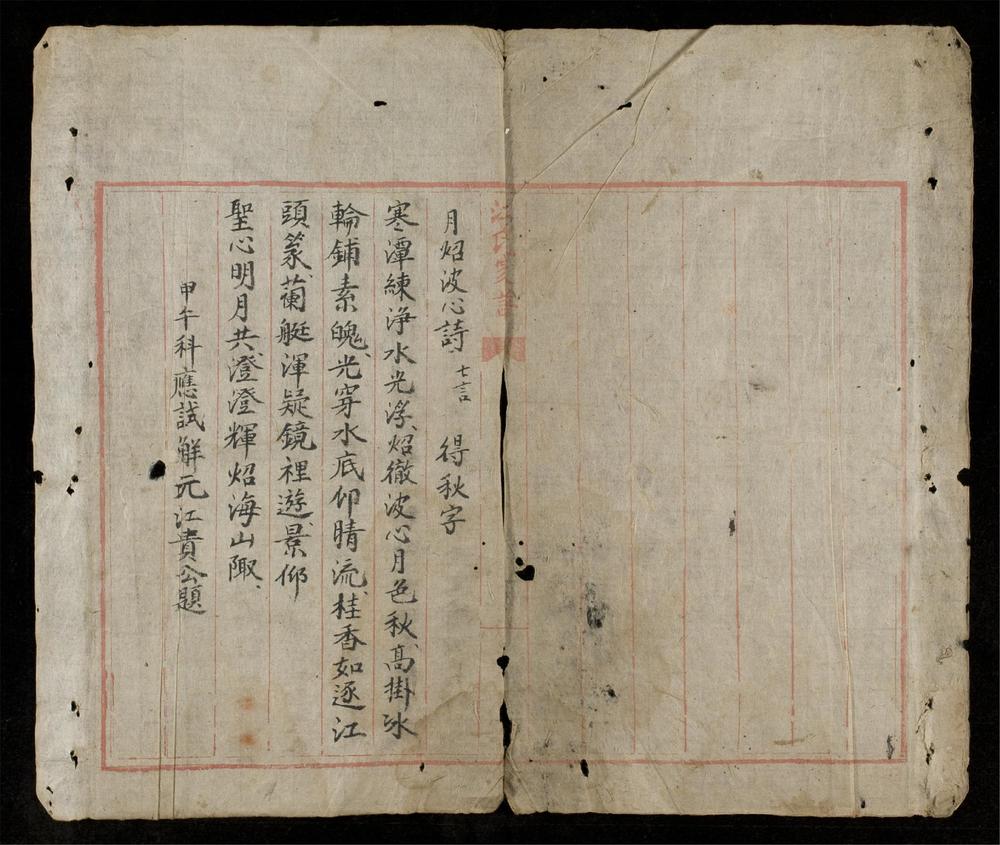 江氏家譜
月炤波心詩 七言 得秋字
寒潭練淨水光浮、炤徹波心月色秋、高掛冰
輪鋪素魄、光穿水底仰晴流、桂香如逐江
頭篆、蘭艇渾疑鏡裡遊、景仰
聖心明月共、澄澄輝炤海山陬、
甲午科應試解元江貴公題